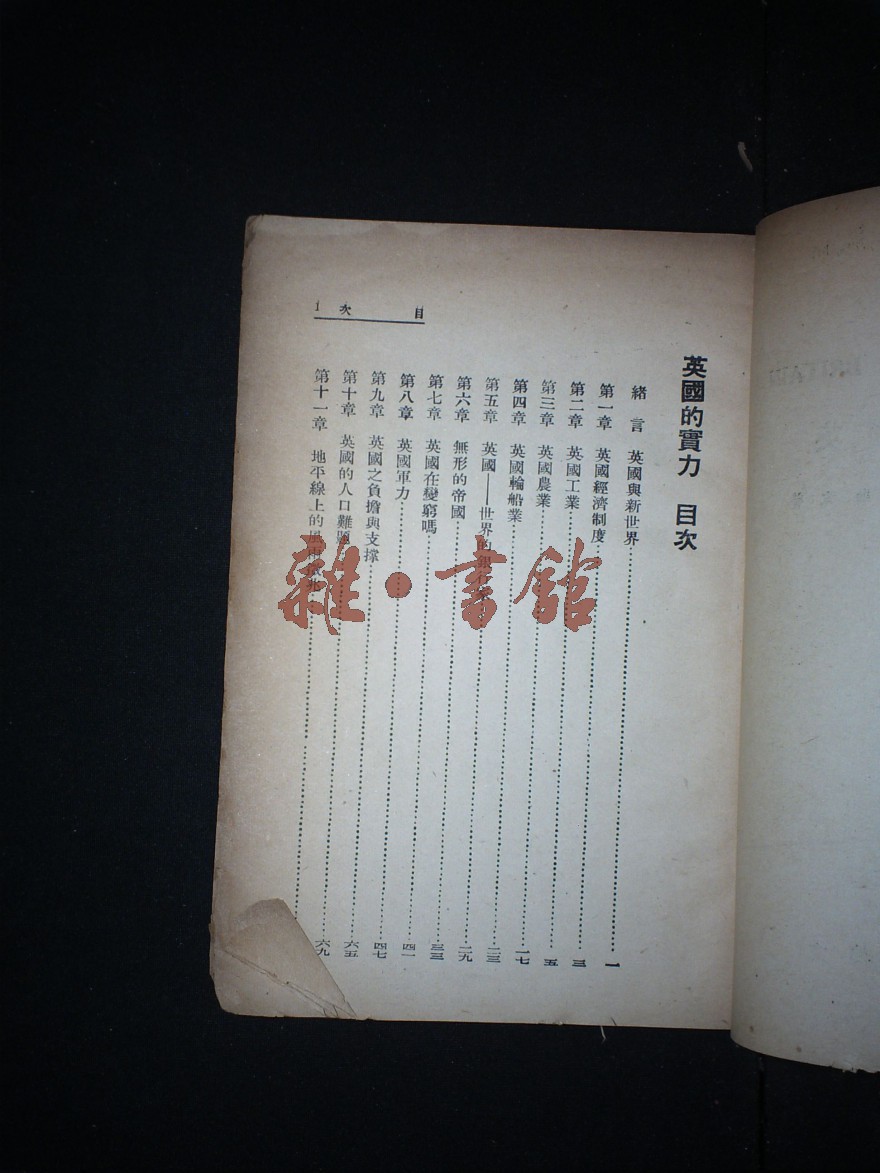 英國的實力 目次
緒言 英國與新世界 一
第一章 英國經濟制度 三
第二章 英國工業 五
第三章 英國農業 一七
第四章 英國輪船業 二三
第五章 英國——世界的銀行 二九
第六章 無形的帝國 三三
第七章 英國在變窮嗎 四一
第八章 英國軍力 四七
第九章 英國之負擔與支撐 六五
第十章 英國的人口難題 六九
第十一章 地平線上的風雨
目次 1
雜·書館